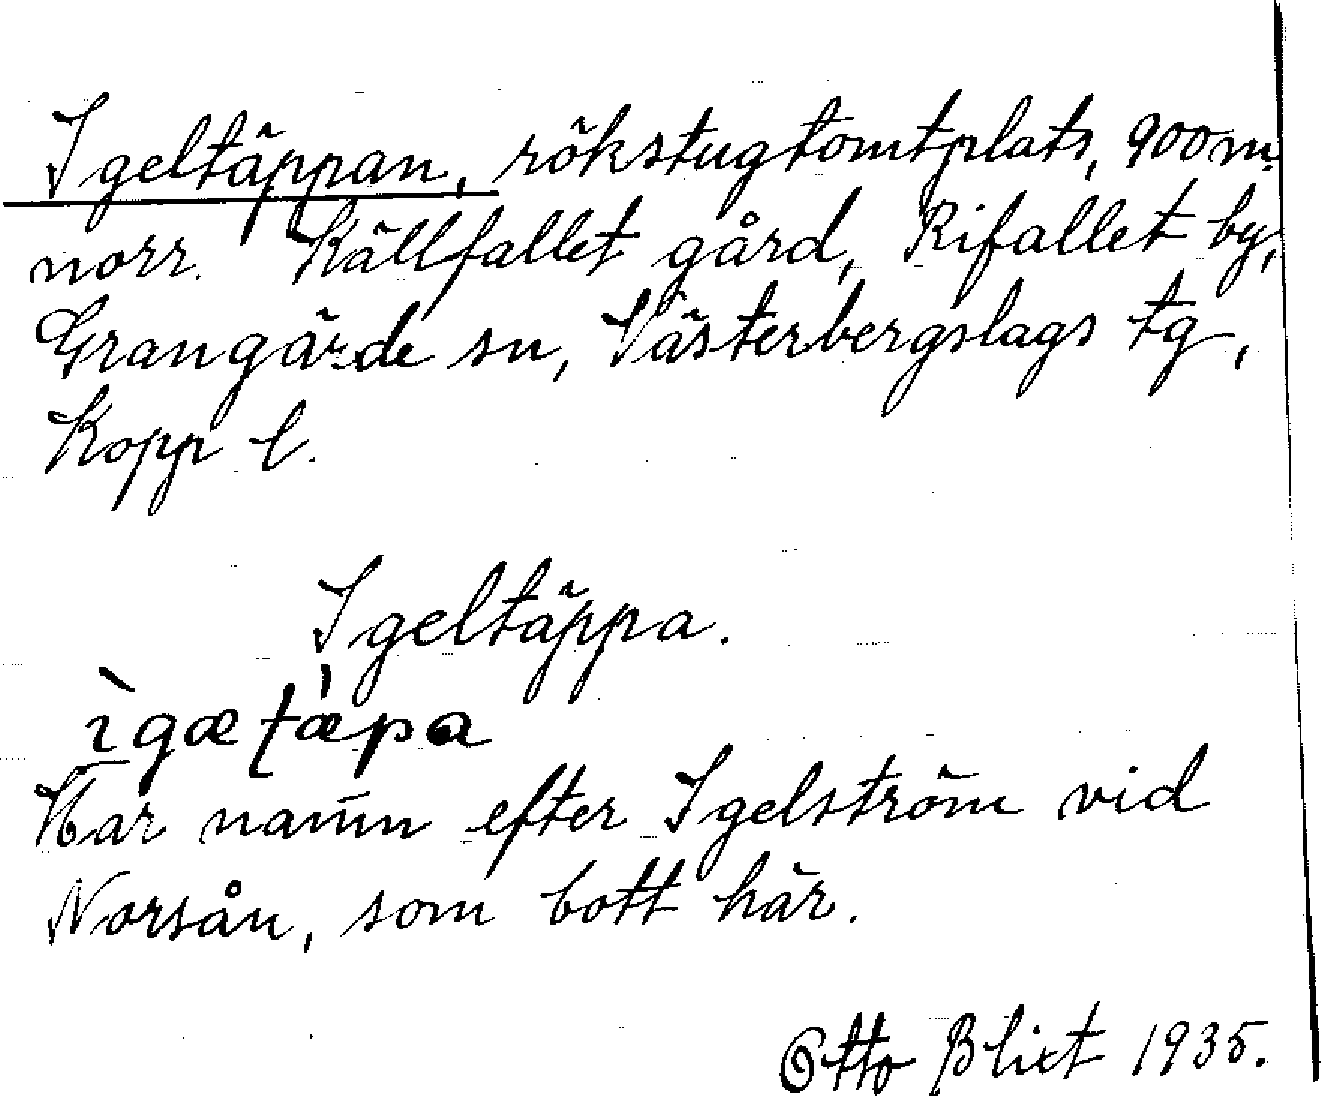 Igeltäppan, rökstugtomtplats, 900 m.
norr. Källfallet gård, Rifallet by,
Grangärde sn, Västerbergslags tg,
Kopp l.
Igeltäppa.
ìgæt̩æ̀pa
Har namn efter Igelström vid
Norsån, som bott här.
Otto Blixt 1935.